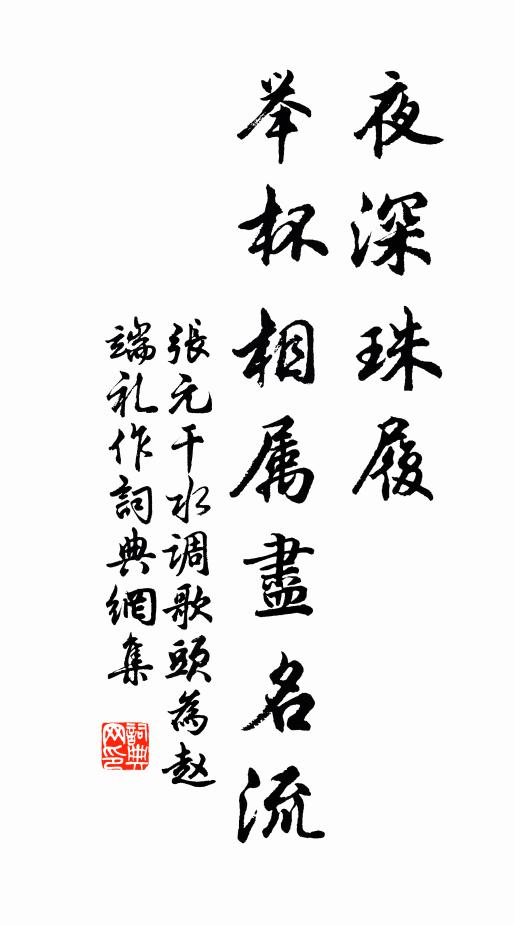 夜深珠履
举杯相属盡名流
張元干水调歌頭為赵
端礼作詞典網集
詞典网印